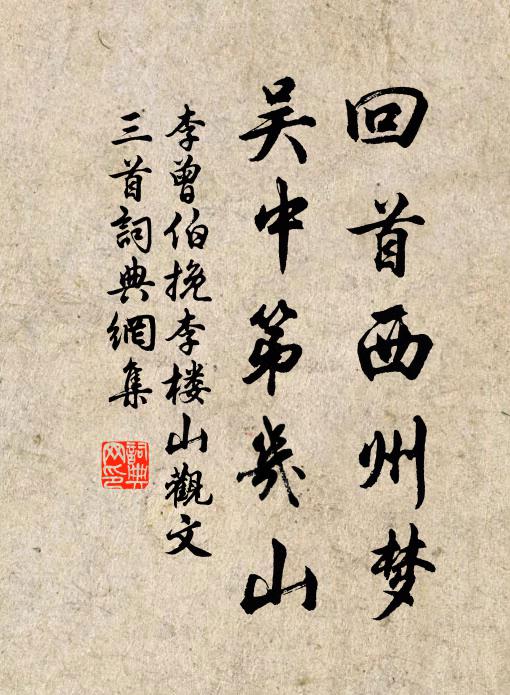 回首西州梦
吴中第几山
李曾伯挽李楼山觀文
三首詞典網集
詞典网印